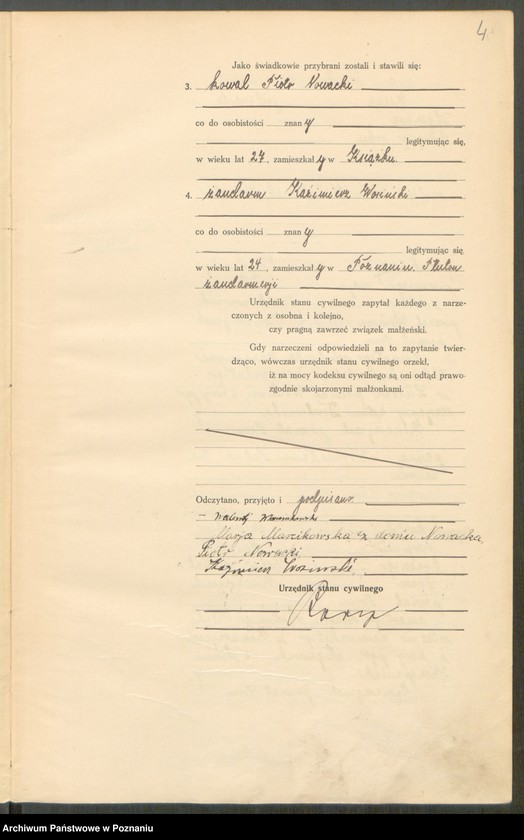 4
Jako świadkowie przybrani zostali i stawili się:
3. kowal Piotr Nowacki
co do osobistości znany
legitymując się,
w wieku lat 27, zamieszkały w Książku.
4. żandarm Kaźimierz Wosiński
co do osobistości znany
legitymując się
w wieku lat 24, zamieszkały w Poznaniu.
żandarmerji
Urzędnik stanu cywilnego zapytał każdego z narze-
czonych z osobna i kolejno,
czy pragną zawrzeć związek małżeński.
Gdy narzeczeni odpowiedzieli na to zapytanie twier-
dząco, wówczas urzędnik stanu cywilnego orzekł,
iż na mocy kodeksu cywilnego są oni odtąd prawo-
zgodnie skojarzonymi małżonkami.
Odczytano, przyjęto i podpisano.
Marja Marcikowska z domu Nowacka
Piotr Nowacki
Kaźimierz Wosiński.
Urzędnik stanu cywilnego
Archiwum Państwowe w Poznaniu